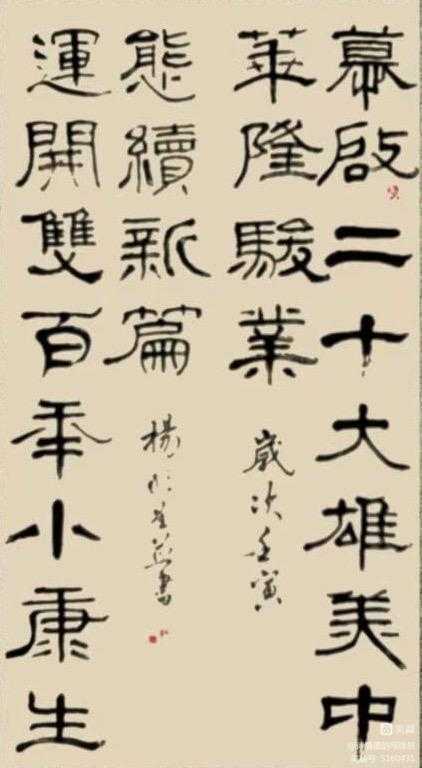 幕啟二十大雄美中
華隆駿業
歲次壬寅
運開雙百年小康生
態續新篇
楊 書
美篇
美篇号 5160431